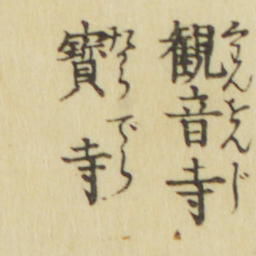 観音寺
くわんをんじ
寶寺
たからでら